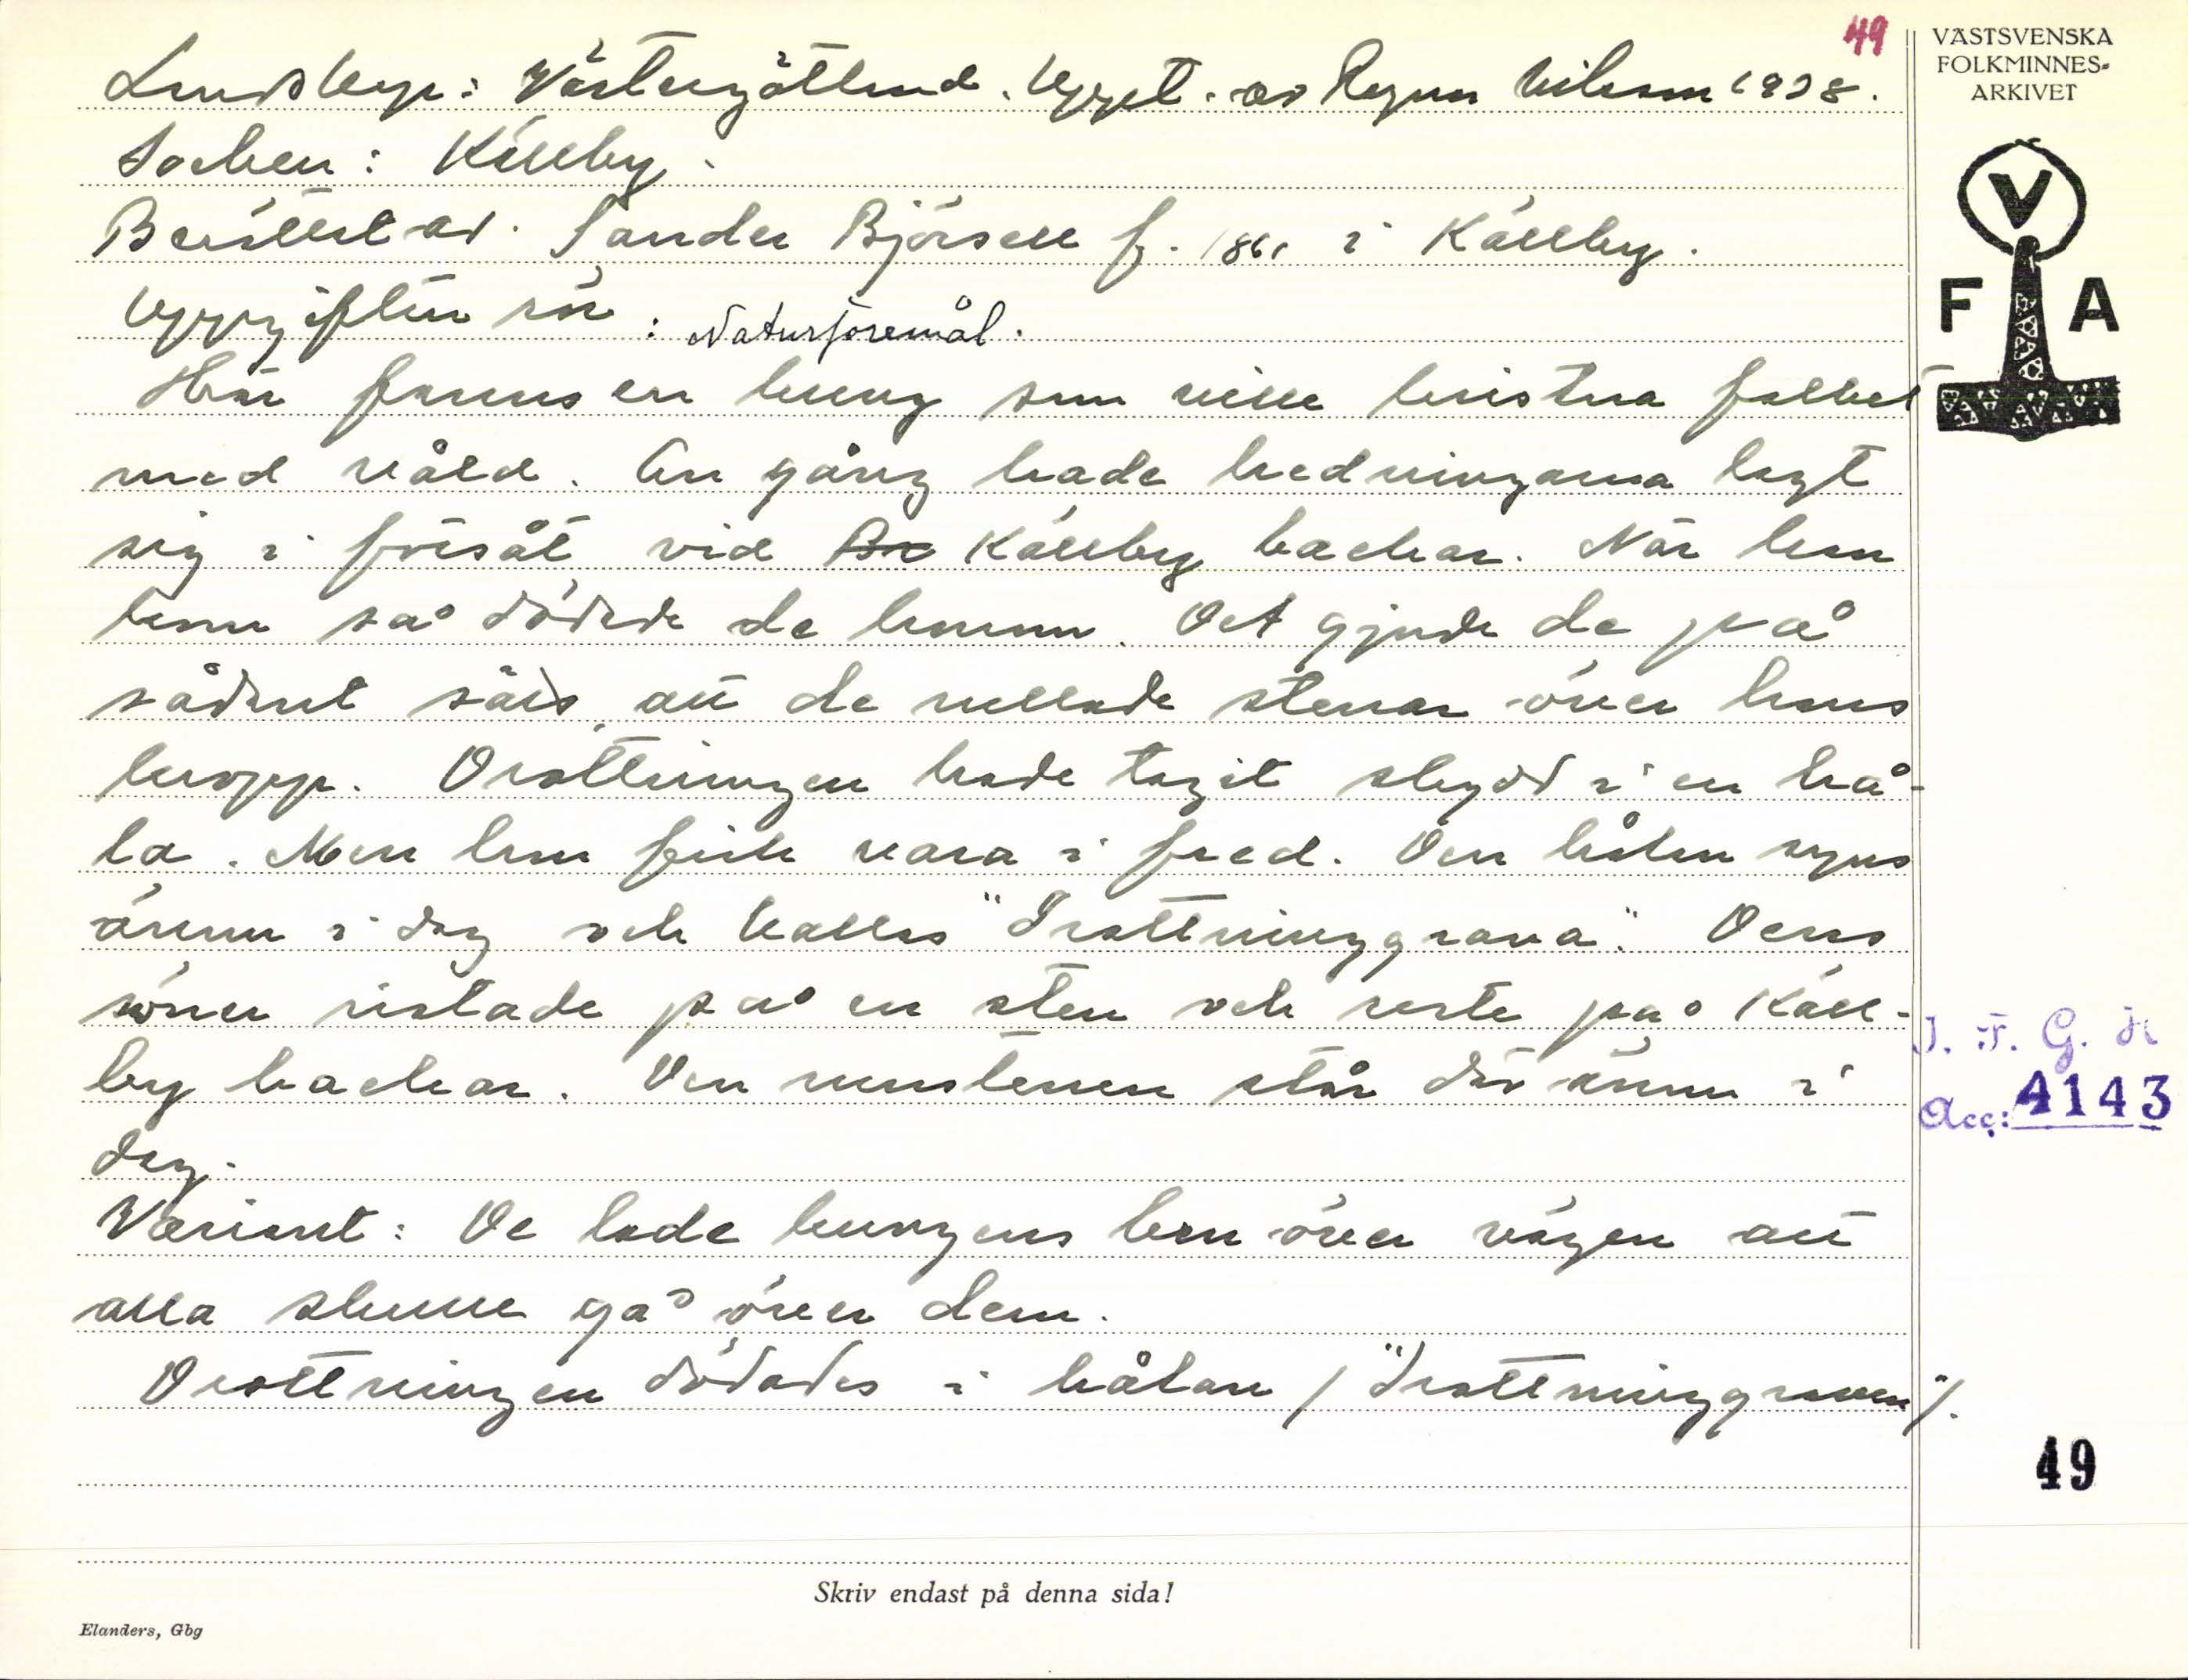 49
Landskap: Västergötland. Uppt. av Ragnar Nilsson 1938.
Socken: Källby.
Berättat av. Sander Björsell f. 1861 i Källby.
Uppgiften rör: Naturföremål.
Här fanns en kung som ville kristna folket
med våld. En gång hade hedningarna lagt
sig i försåt vid Källby backar. När han
kom så dödade de honom. Det gjorde de på
sådant sätt, att de rullade stenar över hans
kropp. Drottningen hade tagit skydd i en hå-
la. Men hon fick vara i fred. Den hålan syns
ännu i dag och kallas "Drottninggrava". Dens
söner ristade på en sten och reste på Käll-
by backar. Den runstenen står där ännu i
dag.
Variant: De lade kungens ben över vägen att
alla skulle gå över dem.
Drottningen dödades i hålan /"Drottninggraven"/.
VÄSTSVENSKA
FOLKMINNES-
ARKIVET
V
F A
I. F. G. H
Acc: 4143
49
Skriv endast på denna sida!
Elanders, Gbg